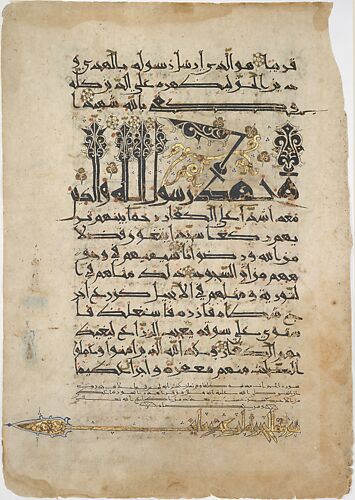 قريبا هو الذي ارسل رسوله بالهدى و
دين الحق ليظهره على الدين كله
وكفى بالله شهيدا
محمد رسول الله والذين
معه اشدا على الكفار رحما بينهم تر
يهم ركعا سجدا يبتغون فضلا
من الله ورضوانا سيماهم في وجو
ههم من اثر السجود ذلك مثلهم في ا
لتورية ومثلهم في الانجيل كزرع اخر
ج شطاه فازره فاستغلظ فا
ستوى على سوقه يعجب الزراع ليغيظ
بهم الكفار وعد الله الذين امنوا وعملوا
الصلحت منهم مغفرة واجرا عظيما